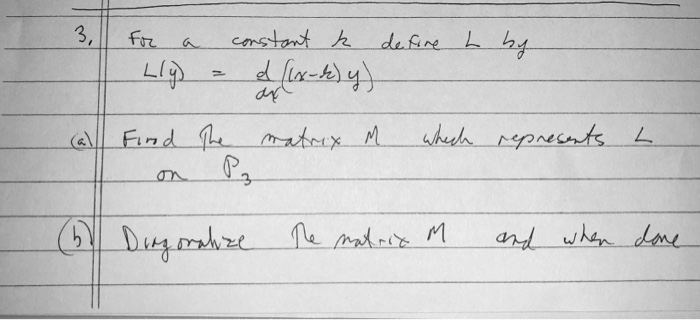 3, For a constant k define L by
L(y) = d/dx ((x-k) y)
(a) Find the matrix M which represents L
on P3
(b) Diagonalize the matrix M and when done